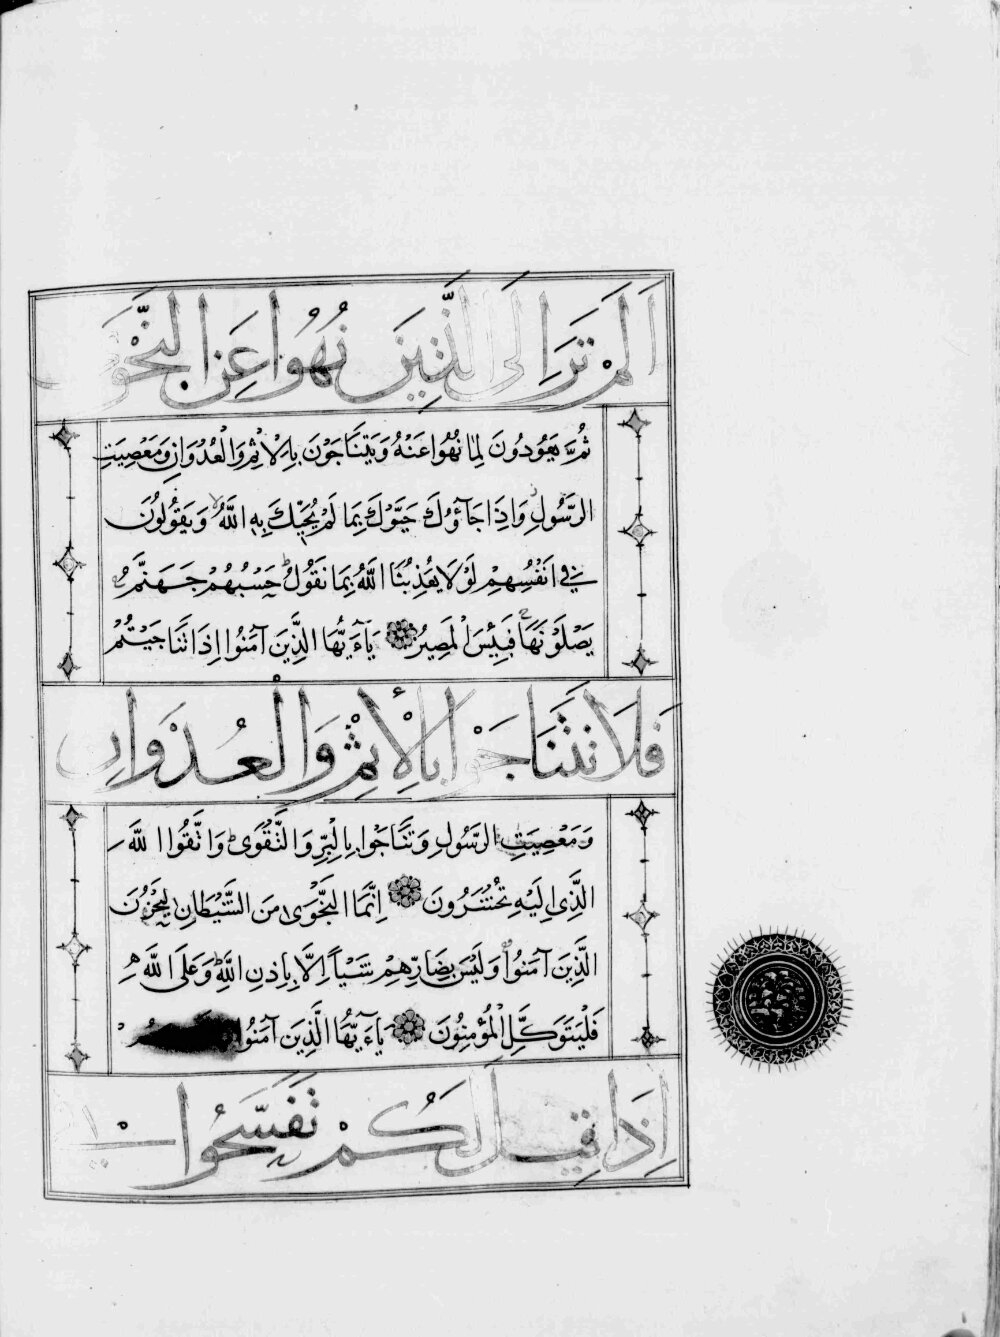 اَلَمْ تَرَ اِلَى الَّذِينَ نُهُوا عَنِ النَّجْوَى
ثُمَّ يَعُودُونَ لِمَا نُهُوا عَنْهُ وَيَتَنَاجَوْنَ بِالْاِثْمِ وَالْعُدْوَانِ وَمَعْصِيَتِ
الرَّسُولِ وَاِذَا جَآؤُكَ حَيَّوْكَ بِمَا لَمْ يُحَيِّكَ بِهِ اللَّهُ وَيَقُولُونَ
فِي اَنْفُسِهِمْ لَوْلَا يُعَذِّبُنَا اللَّهُ بِمَا نَقُولُ حَسْبُهُمْ جَهَنَّمُ
يَصْلَوْنَهَا فَبِئْسَ الْمَصِيرُ يَآءَيُّهَا الَّذِينَ آمَنُوا اِذَا تَنَاجَيْتُمْ
فَلَا تَتَنَاجَوْا بِالْاِثْمِ وَالْعُدْوَانِ
وَمَعْصِيَتِ الرَّسُولِ وَتَنَاجَوْا بِالْبِرِّ وَالتَّقْوَى وَاتَّقُوا اللَّهَ
الَّذِي اِلَيْهِ تُحْشَرُونَ اِنَّمَا النَّجْوَى مِنَ الشَّيْطَانِ لِيَحْزُنَ
الَّذِينَ آمَنُوا وَلَيْسَ بِضَارِّهِمْ شَيْـاً اِلَّا بِاِذْنِ اللَّهِ وَعَلَى اللَّهِ
فَلْيَتَوَكَّلِ الْمُؤْمِنُونَ يَآءَيُّهَا الَّذِينَ آمَنُوا
اِذَا قِيلَ لَكُمْ تَفَسَّحُوا